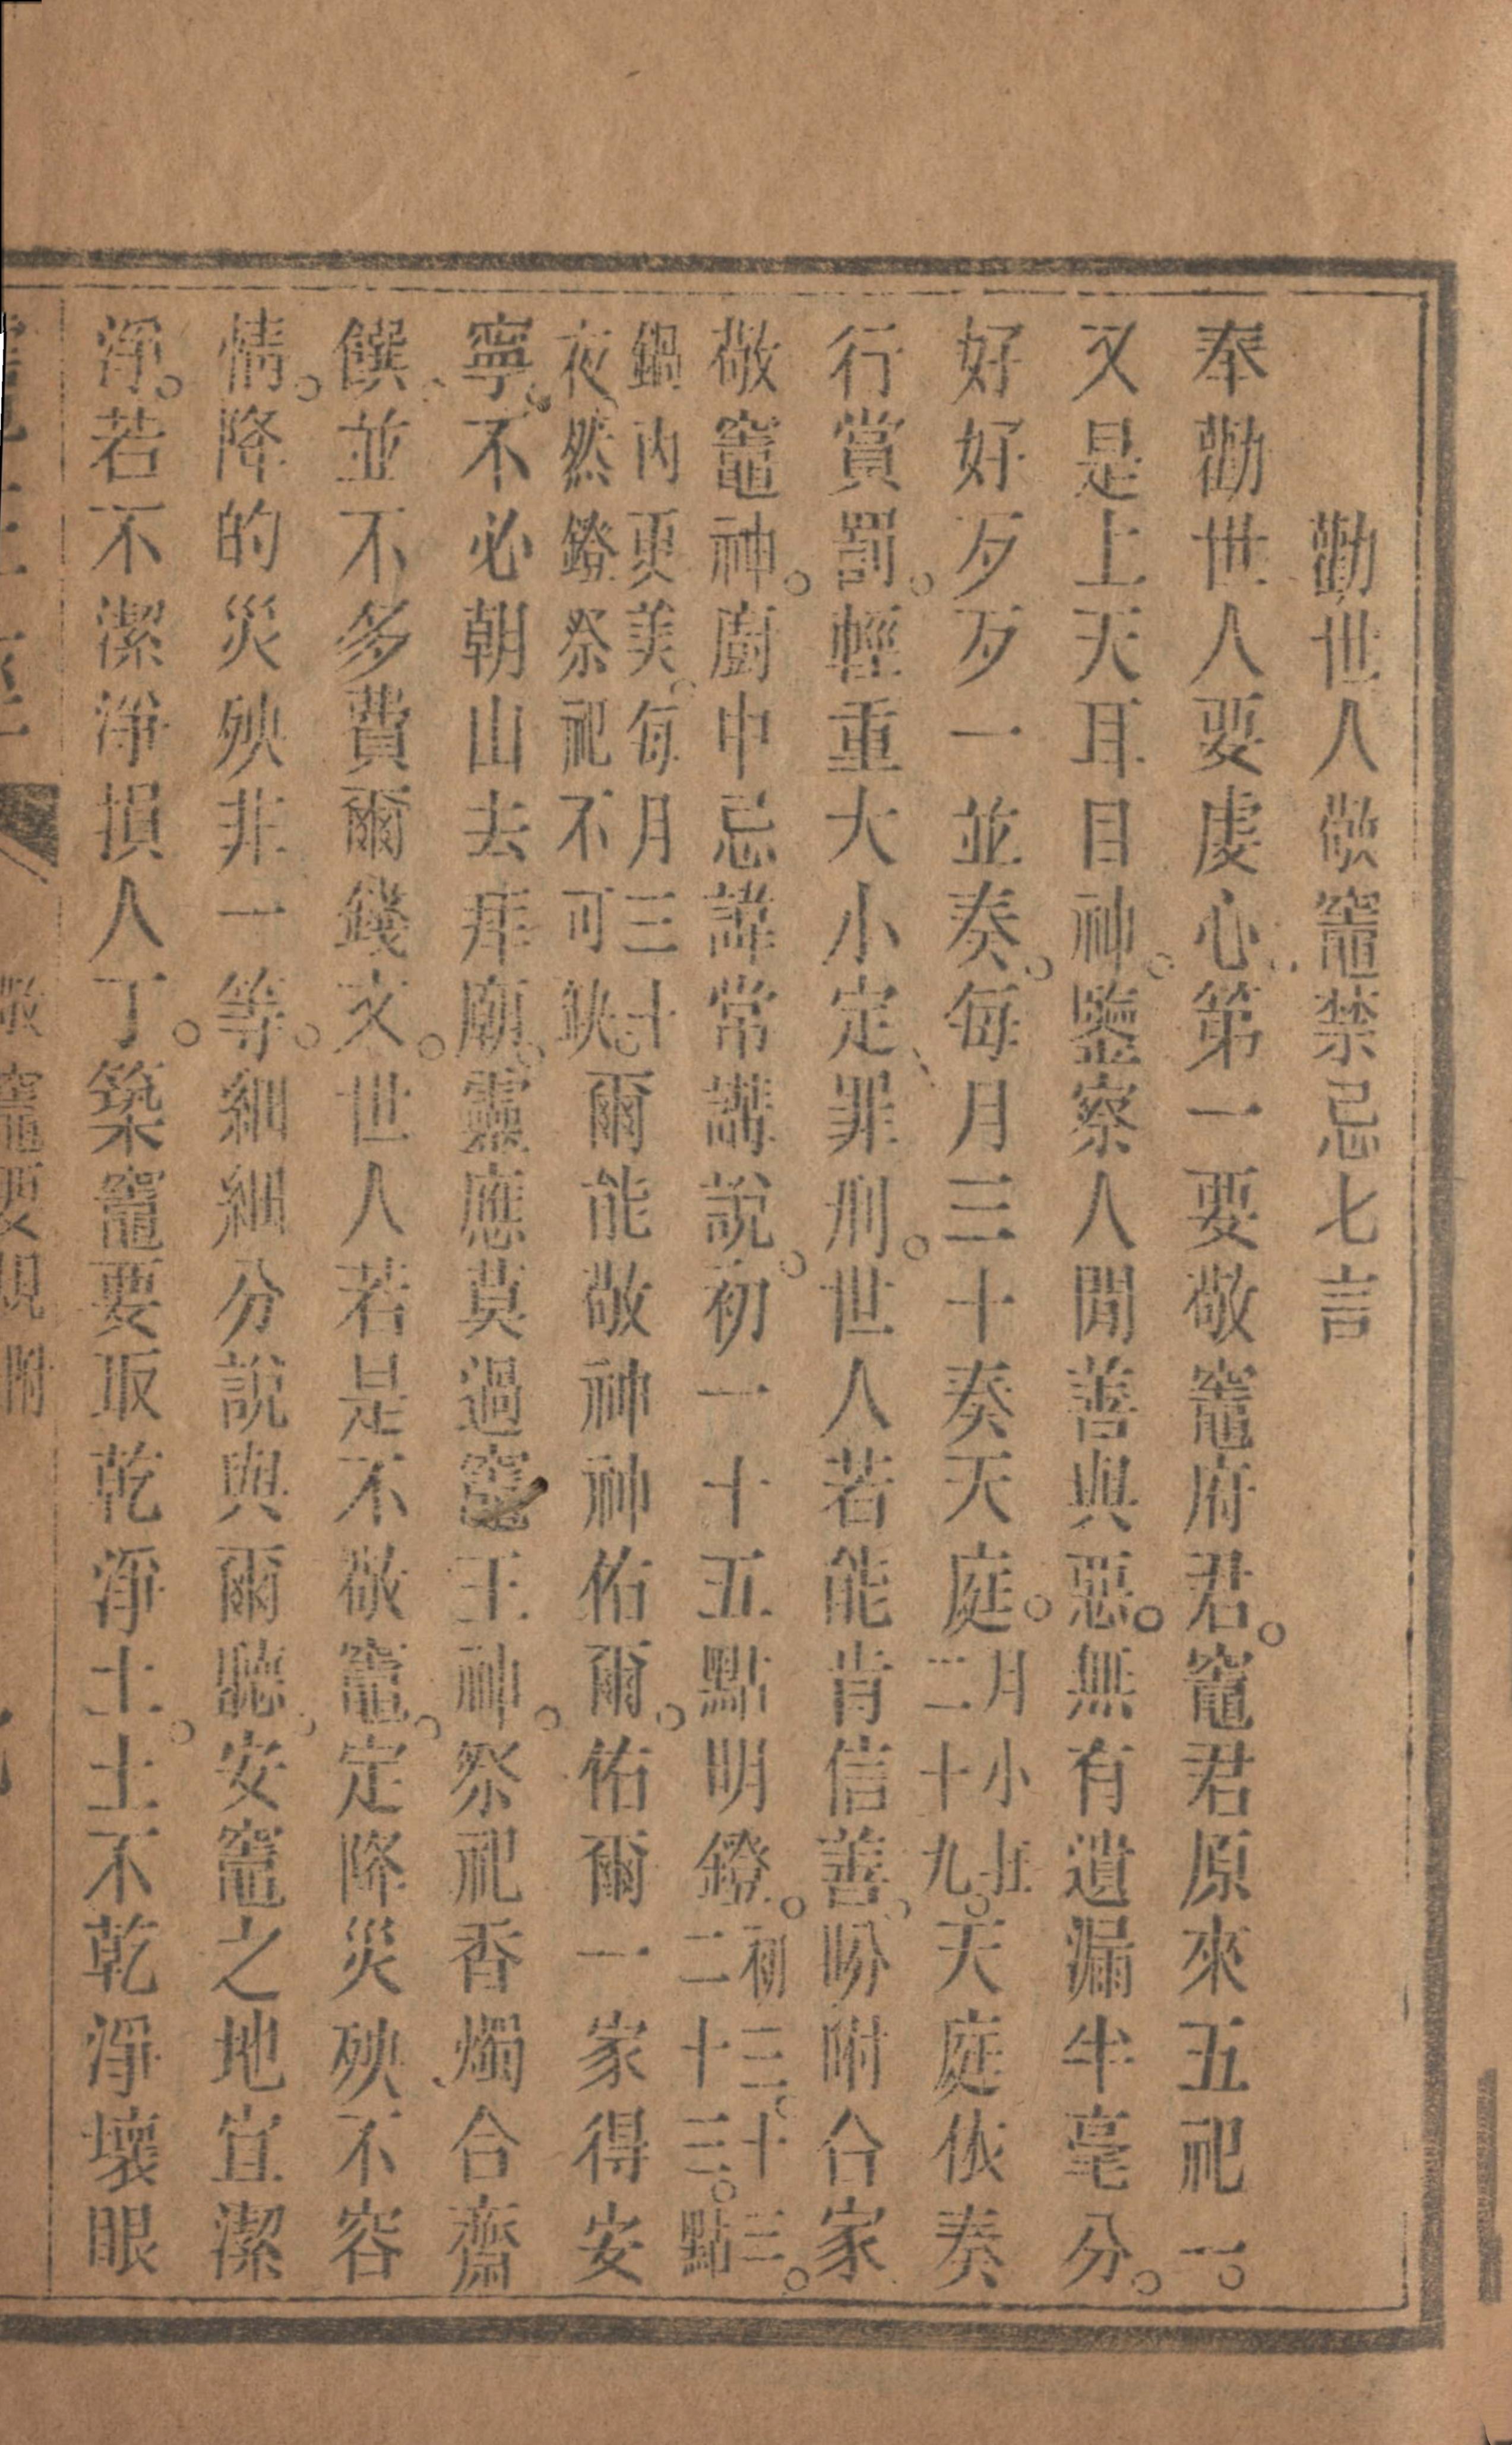 勸世人敬竈禁忌七言
奉勸世人要虔心第一要敬竈府君。竈君原來五祀一。
又是上天耳目神。鑒察人間善與惡。無有遺漏半毫分。
好好歹歹一並奏。每月三十奏天庭。月小在二十九。天庭依奏
行賞罰。輕重大小定罪刑。世人若能肯信善。吩咐合家
敬竈神。廚中忌諱常講說。初一十五點明鐙。初三。十三。二十三。點
鍋內更美。每月三十夜然鐙祭祀不可缺。爾能敬神神佑爾。佑爾一家得安
寧。不必朝山去拜廟。靈應莫過竈王神。祭祀香燭合齋
饌、並不多費爾錢文。世人若是不敬竈。定降災殃不容
情。降的災殃非一等。細細分說與爾聽。安竈之地宜潔
淨。若不潔淨損人丁。築竈要取乾淨土。土不乾淨壞眼
敬竈要規附